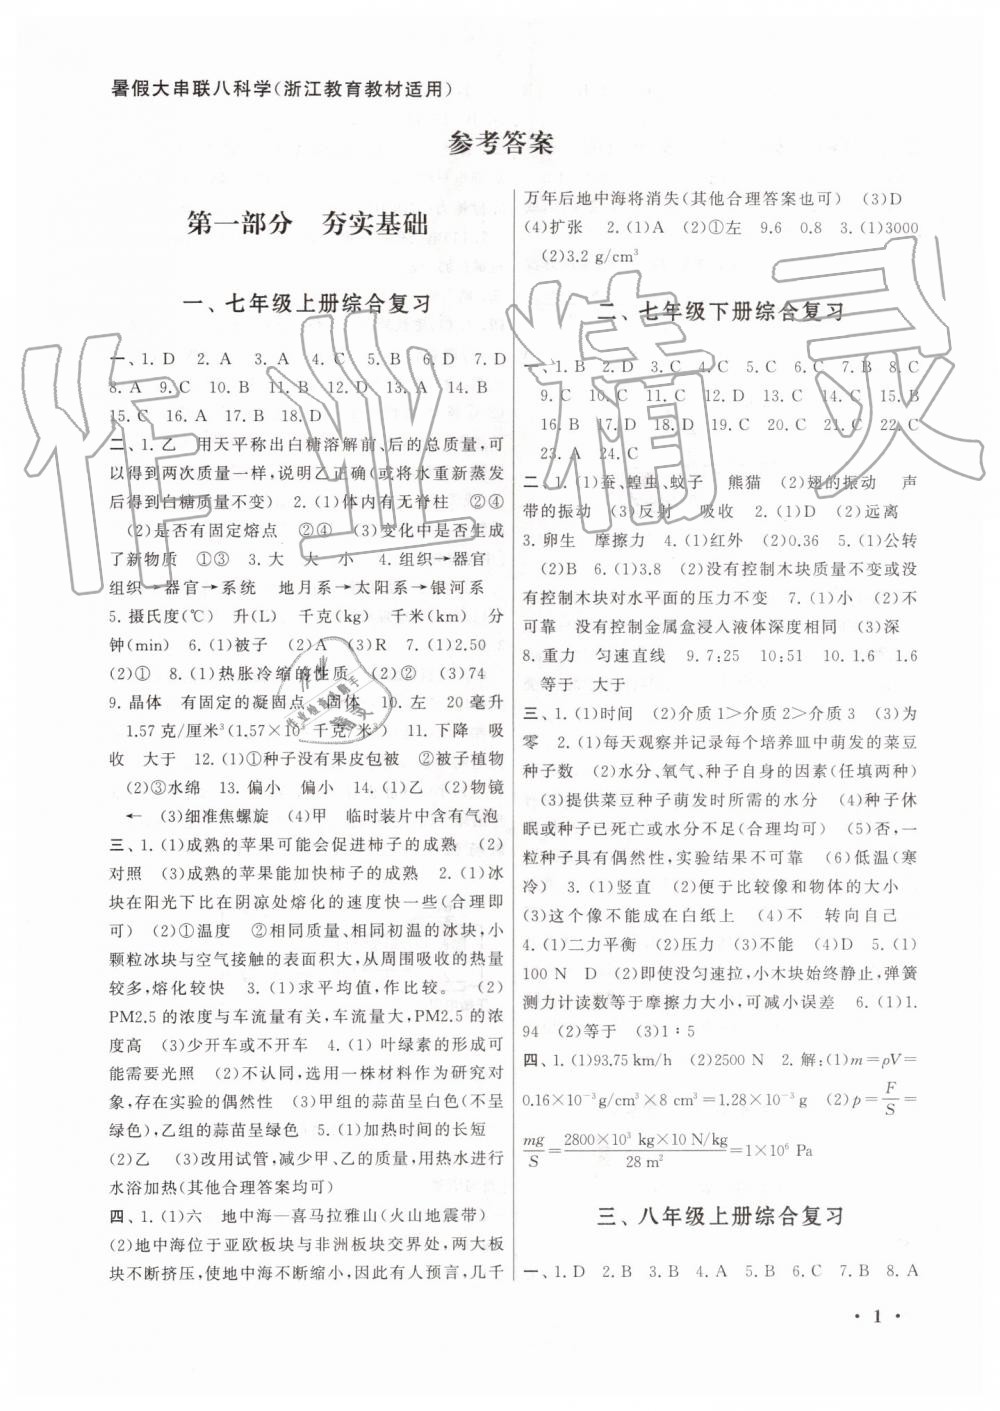 暑假大串联八科学(浙江教育教材适用)
参考答案
第一部分 夯实基础
一、七年级上册综合复习
一、1. D 2. A 3. A 4. C 5. B 6. D 7. D
8. A 9. C 10. B 11. B 12. D 13. A 14. B
15. C 16. A 17. B 18. D
二、1. 乙 用天平称出白糖溶解前、后的总质量,可
以得到两次质量一样,说明乙正确(或将水重新蒸发
后得到白糖质量不变) 2. (1)体内有无脊柱 ②④
(2)是否有固定熔点 ②④ (3)变化中是否生成
了新物质 ①③ 3. 大 大 小 4. 组织→器官
组织→器官→系统 地月系→太阳系→银河系
5. 摄氏度(℃) 升(L) 千克(kg) 千米(km) 分
钟(min) 6. (1)被子 (2)A (3)R 7. (1)2.50
(2)① 8. (1)热胀冷缩的性质 (2)② (3)74
9. 晶体 有固定的凝固点 固体 10. 左 20 毫升
1.57 克/厘米³(1.57×10³ 千克/米³) 11. 下降 吸
收 大于 12. (1)①种子没有果皮包被 ②被子植物
(2)③水绵 13. 偏小 偏小 14. (1)乙 (2)物镜
← (3)细准焦螺旋 (4)甲 临时装片中含有气泡
三、1. (1)成熟的苹果可能会促进柿子的成熟 (2)
对照 (3)成熟的苹果能加快柿子的成熟 2. (1)冰
块在阳光下比在阴凉处熔化的速度快一些(合理即
可) (2)①温度 ②相同质量、相同初温的冰块,小
颗粒冰块与空气接触的表面积大,从周围吸收的热量
较多,熔化较快 3. (1)求平均值,作比较。 (2)
PM2.5 的浓度与车流量有关,车流量大,PM2.5 的浓
度高 (3)少开车或不开车 4. (1)叶绿素的形成可
能需要光照 (2)不认同,选用一株材料作为研究对
象,存在实验的偶然性 (3)甲组的蒜苗呈白色(不呈
绿色),乙组的蒜苗呈绿色 5. (1)加热时间的长短
(2)乙 (3)改用试管,减少甲、乙的质量,用热水进行
水浴加热(其他合理答案均可)
四、1. (1)六 地中海—喜马拉雅山(火山地震带)
(2)地中海位于亚欧板块与非洲板块交界处,两大板
块不断挤压,使地中海不断缩小,因此有人预言,几千
万年后地中海将消失(其他合理答案也可) (3)D
(4)扩张 2. (1)A (2)①左 9.6 0.8 3. (1)3000
(2)3.2 g/cm³
二、七年级下册综合复习
一、1. B 2. D 3. C 4. C 5. C 6. C 7. B 8. C
9. C 10. C 11. C 12. B 13. B 14. C 15. C
16. B 17. D 18. D 19. C 20. C 21. C 22. B
23. A 24. C
二、1. (1)蚕、蝗虫、蚊子 熊猫 (2)翅的振动 声
带的振动 (3)反射 吸收 2. (1)D (2)远离
3. 卵生 摩擦力 4. (1)红外 (2)0.36 5. (1)公转
(2)B 6. (1)3.8 (2)没有控制木块质量不变或没
有控制木块对水平面的压力不变 7. (1)小 (2)不
可靠 没有控制金属盒浸入液体深度相同 (3)深
8. 重力 匀速直线 9. 7:25 10:51 10. 1.6 1.6
等于 大于
三、1. (1)时间 (2)介质1>介质2>介质3 (3)为
零 2. (1)每天观察并记录每个培养皿中萌发的菜豆
种子数 (2)水分、氧气、种子自身的因素(任填两种)
(3)提供菜豆种子萌发时所需的水分 (4)种子休
眠或种子已死亡或水分不足(合理均可) (5)否,一
粒种子具有偶然性,实验结果不可靠 (6)低温(寒
冷) 3. (1)竖直 (2)便于比较像和物体的大小
(3)这个像不能成在白纸上 (4)不 转向自己
4. (1)二力平衡 (2)压力 (3)不能 (4)D 5. (1)
100 N D (2)即使没匀速拉,小木块始终静止,弹簧
测力计读数等于摩擦力大小,可减小误差 6. (1)1.
94 (2)等于 (3)1∶5
四、1. (1)93.75 km/h (2)2500 N 2. 解:(1)m=ρV=
0.16×10⁻³g/cm³×8 cm³=1.28×10⁻³ g (2)p=F/S=
mg/S=2800×10³ kg×10 N/kg/28 m²=1×10⁶ Pa
三、八年级上册综合复习
一、1. D 2. B 3. B 4. A 5. B 6. C 7. B 8. A
· 1 ·
作业精灵